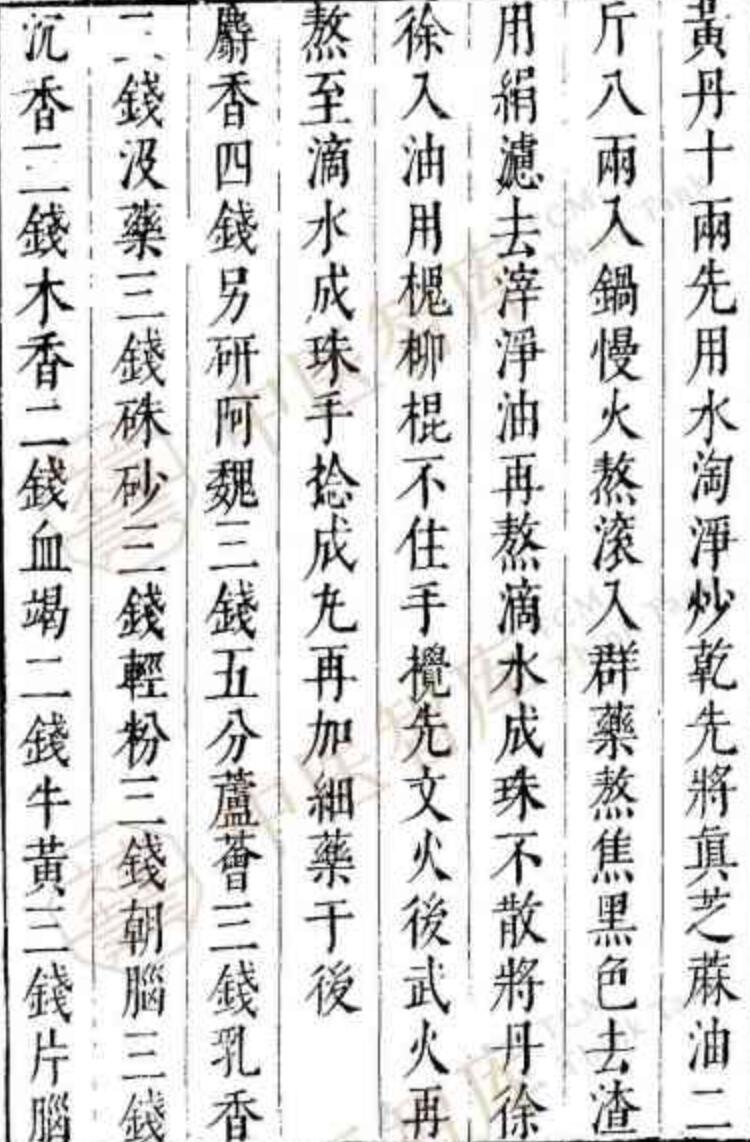 黃丹十兩先用水淘淨炒乾先將眞芝蔴油二
斤八兩入鍋慢火熬滚入群藥熬焦黑色去渣
用絹濾去滓淨油再熬滴水成珠不散將丹徐
徐入油用槐柳棍不住手攪先文火後武火再
熬至滴水成珠手捻成丸再加細藥于後
麝香四錢另研阿魏三錢五分蘆薈三錢乳香
二錢没藥三錢硃砂三錢輕粉三錢朝腦三錢
沉香二錢木香二錢血竭二錢牛黃三錢片腦
中医智库
TCM Think Tank
中医智库
TCM Think Tank